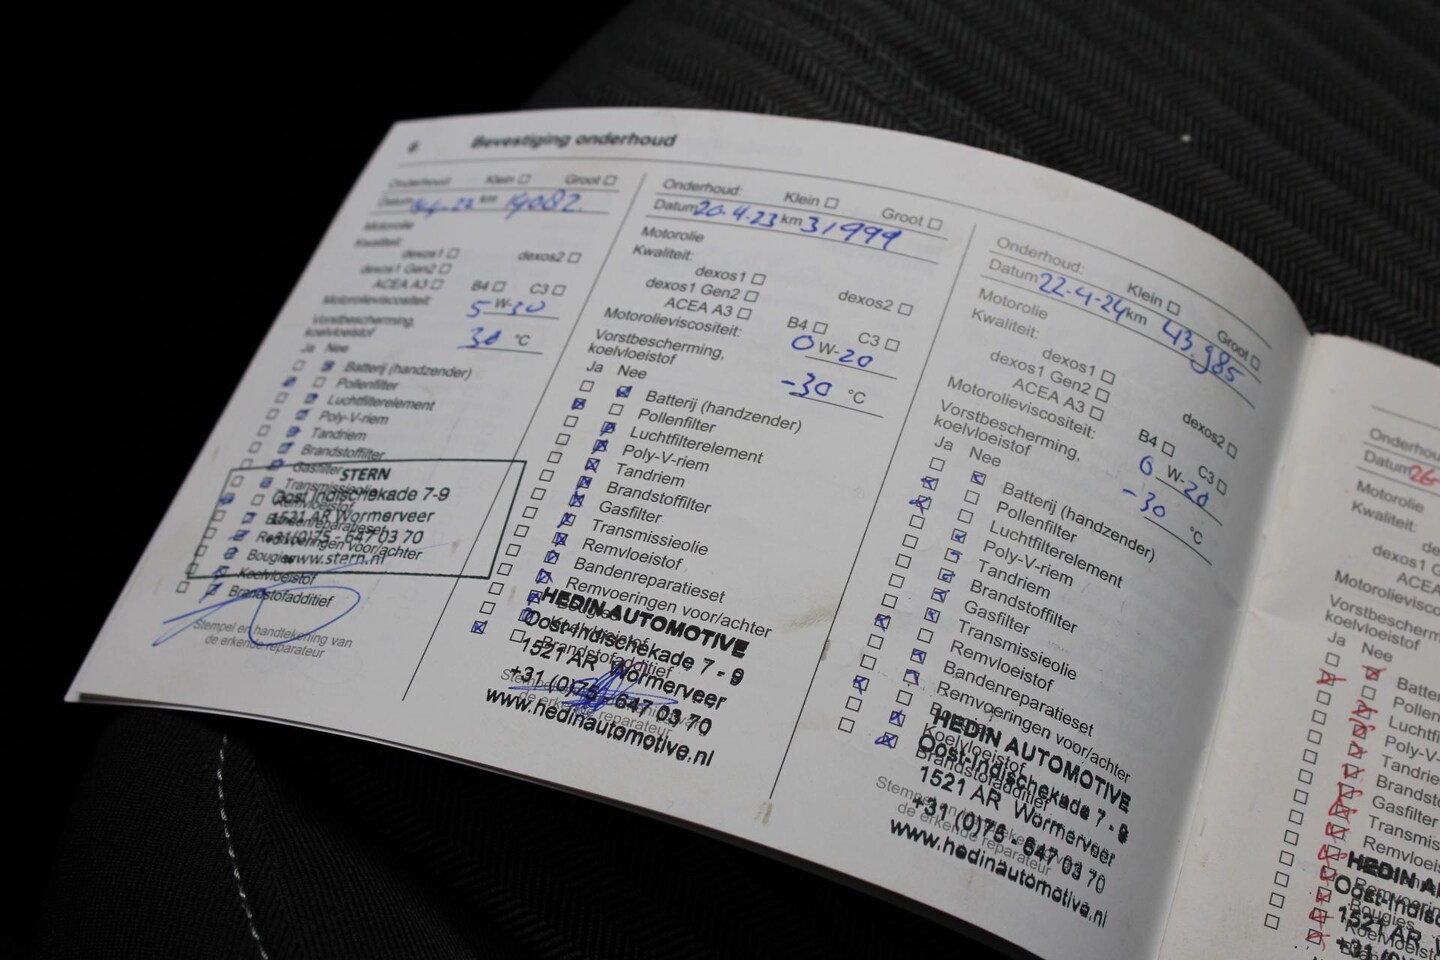 6 Bevestiging onderhoud
Onderhoud: Klein Groot
Datum km 19082
Motorolie
Kwaliteit:
dexos1 dexos2
dexos1 Gen2
ACEA A3 B4 C3
Motorolieviscositeit: 5 W-30
Vorstbescherming,
koelvloeistof 30 °C
Ja Nee
Batterij (handzender)
Pollenfilter
Luchtfilterelement
Poly-V-riem
Tandriem
Brandstoffilter
Gasfilter
Transmissieolie
Remvloeistof
Bandenreparatieset
Remvoeringen voor/achter
Bougies
Koelvloeistof
Brandstofadditief
STERN
Oost Indischekade 7-9
1521 AR Wormerveer
+31(0)75 - 647 03 70
www.stern.nl
Stempel en handtekening van
de erkende reparateur
Onderhoud: Klein Groot
Datum 20-4-23 km 31999
Motorolie
Kwaliteit:
dexos1 dexos2
dexos1 Gen2
ACEA A3 B4 C3
Motorolieviscositeit: 0 W-20
Vorstbescherming,
koelvloeistof -30 °C
Ja Nee
Batterij (handzender)
Pollenfilter
Luchtfilterelement
Poly-V-riem
Tandriem
Brandstoffilter
Gasfilter
Transmissieolie
Remvloeistof
Bandenreparatieset
Remvoeringen voor/achter
Bougies
Koelvloeistof
Brandstofadditief
HEDIN AUTOMOTIVE
Oost-Indischekade 7 - 9
1521 AR Wormerveer
+31 (0)75 - 647 03 70
www.hedinautomotive.nl
de erkende reparateur
Onderhoud: Klein Groot
Datum 22-4-24 km 43.985
Motorolie
Kwaliteit:
dexos1 dexos2
dexos1 Gen2
ACEA A3 B4 C3
Motorolieviscositeit: 0 W-20
Vorstbescherming,
koelvloeistof -30 °C
Ja Nee
Batterij (handzender)
Pollenfilter
Luchtfilterelement
Poly-V-riem
Tandriem
Brandstoffilter
Gasfilter
Transmissieolie
Remvloeistof
Bandenreparatieset
Remvoeringen voor/achter
Koelvloeistof
Brandstofadditief
HEDIN AUTOMOTIVE
Oost-Indischekade 7 - 9
1521 AR Wormerveer
+31 (0)75 - 647 03 70
www.hedinautomotive.nl
de erkende reparateur
Onderhou
Datum 26-
Motorolie
Kwaliteit:
dexos1 G
ACEA
Motorolievisco
Vorstbescherm
koelvloeistof
Ja Nee
Batte
Pollen
Luchtfi
Poly-V-
Tandrie
Brandst
Gasfilter
Transmis
Remvloeis
HEDIN A
Oost-Indisc
1521 AR W
Bougies
Koelvloeist
+31 (0)